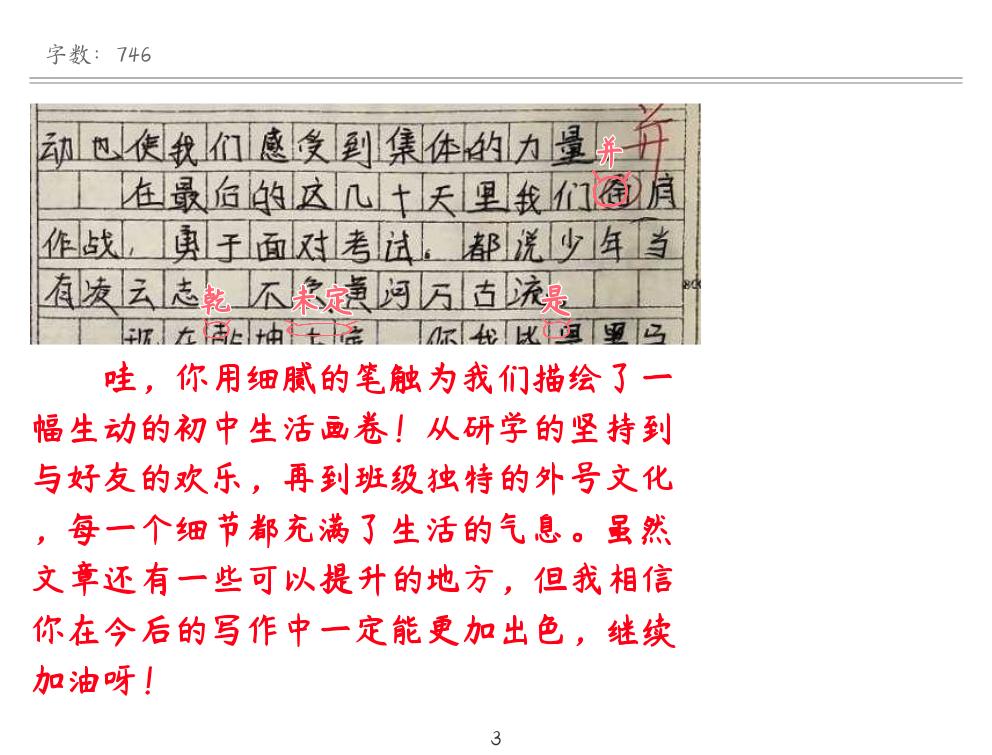 字数：746
动也使我们感受到集体的力量
并
并
在最后的这几十天里我们 肩
作战，勇于面对考试。都说少年当
有凌云志 不负黄河万古流
乾 未定 是
坤 你我
哇，你用细腻的笔触为我们描绘了一
幅生动的初中生活画卷！从研学的坚持到
与好友的欢乐，再到班级独特的外号文化
，每一个细节都充满了生活的气息。虽然
文章还有一些可以提升的地方，但我相信
你在今后的写作中一定能更加出色，继续
加油呀！
3